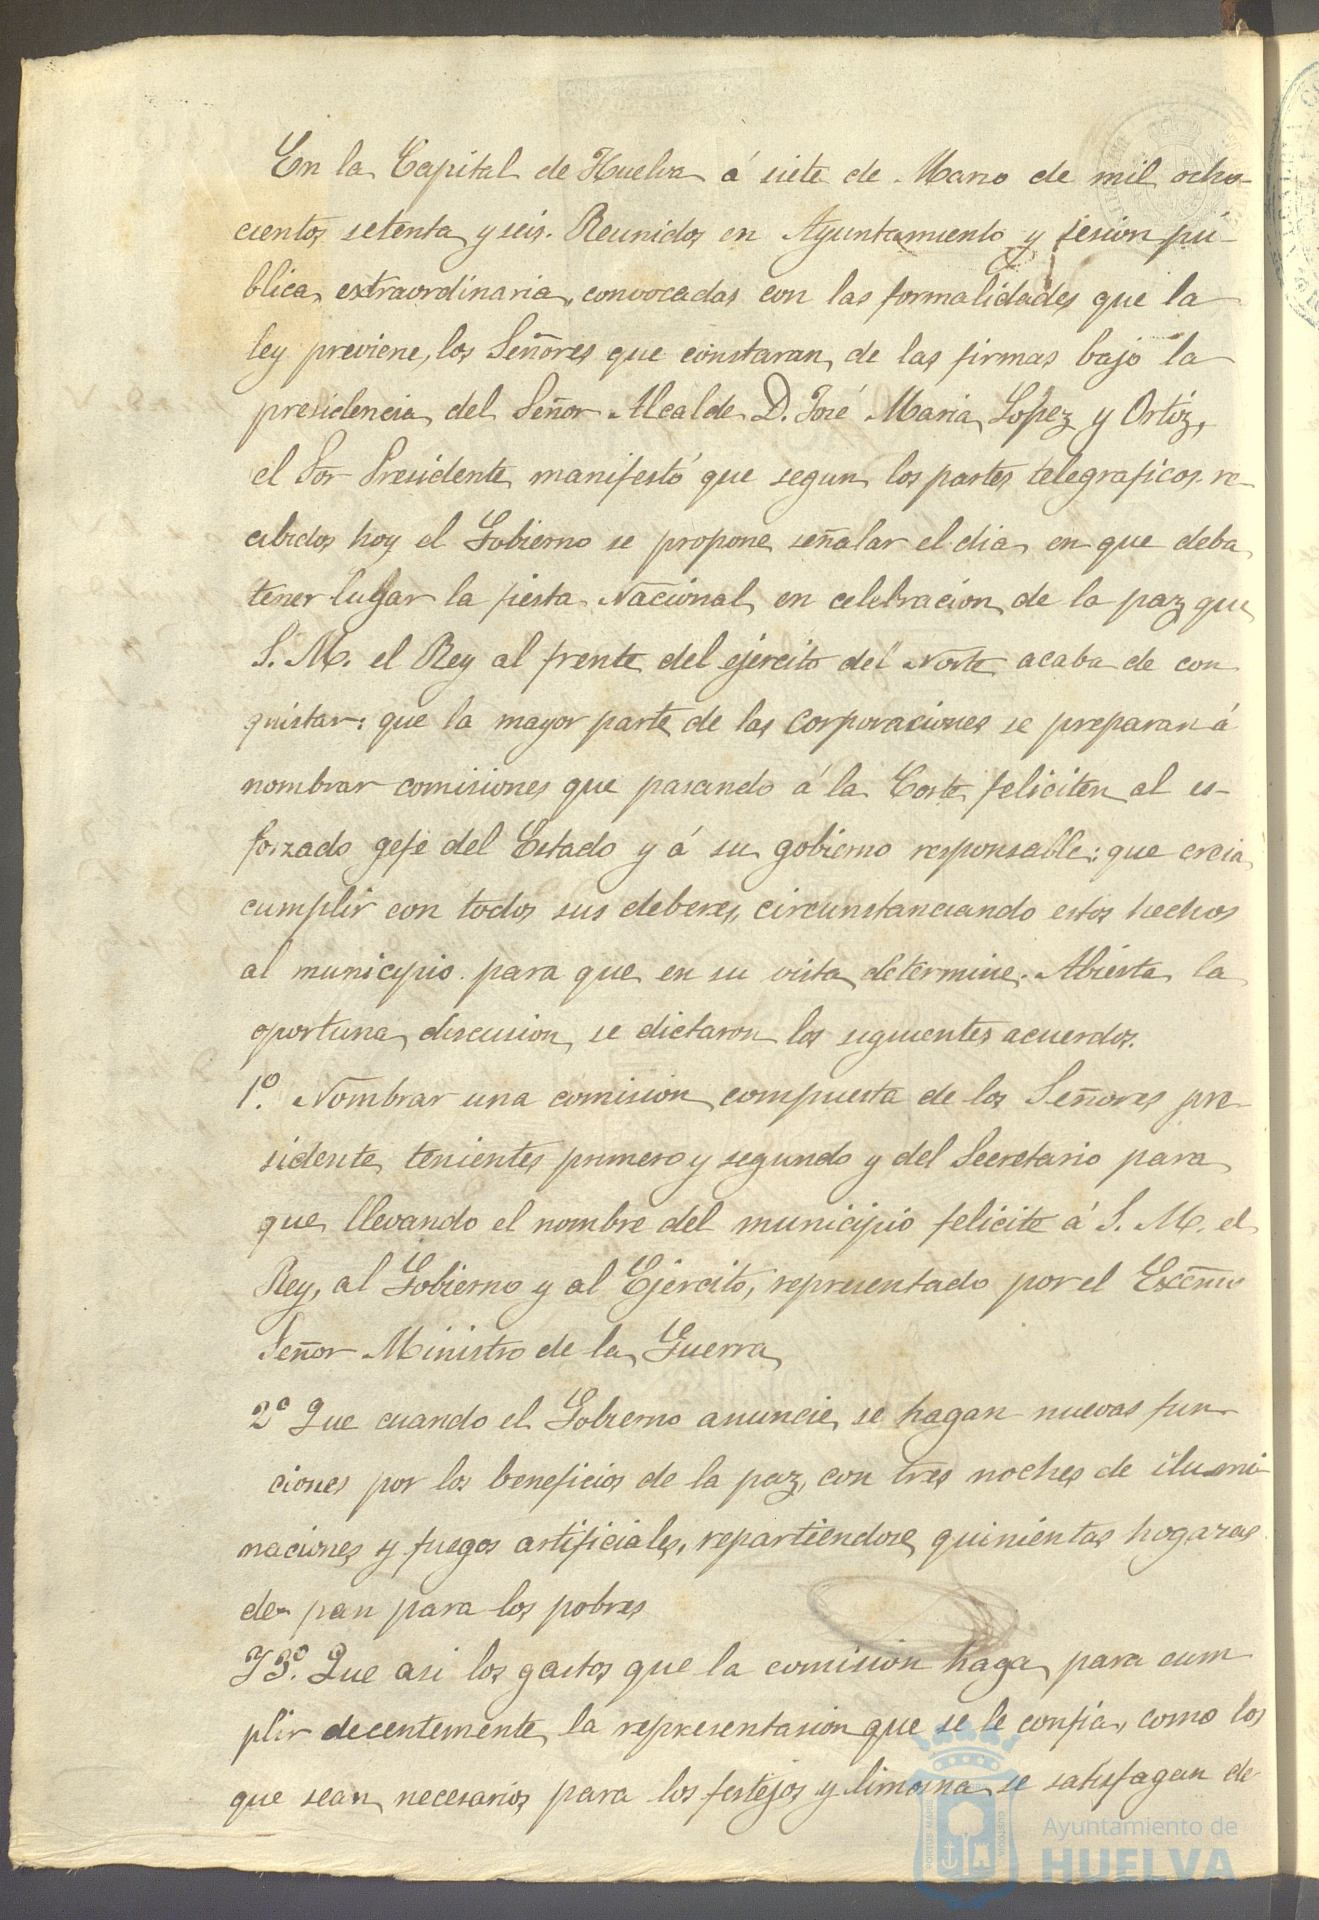 En la Capital de Huelva á siete de Marzo de mil ocho-
cientos setenta y seis. Reunidos en Ayuntamiento y sesion pú-
blica extraordinaria, convocadas con las formalidades que la
ley previene, los Señores que constaran de las firmas bajo la
presidencia del Señor Alcalde D. José Maria Lopez y Ortiz,
el Sor Presidente manifestó que segun los partes telegraficos re-
cibidos hoy el Gobierno se propone señalar el dia en que deba
tener lugar la fiesta Nacional en celebracion de la paz que
S. M. el Rey al frente del ejército del Norte acaba de con
quistar: que la mayor parte de las Corporaciones se preparan á
nombrar comisiones que pasando á la Corte feliciten al es-
forzado gefe del Estado y á su gobierno responsable: que creia
cumplir con todos sus deberes, circunstanciando estos hechos
al municipio para que en su vista determine. Abierta la
oportuna discusion se dictaron los siguientes acuerdos.
1º. Nombrar una comision compuesta de los Señores pre-
sidente, tenientes primero y segundo y del Secretario para
que llevando el nombre del municipio felicite á S. M. el
Rey, al Gobierno y al Ejército, representado por el Excmo
Señor Ministro de la Guerra
2º Que cuando el Gobierno anuncie, se hagan nuevas fun
ciones por los beneficios de la paz, con tres noches de ilumi-
naciones y fuegos artificiales, repartiendose quinientas hogazas
de pan para los pobres
Y 3º. Que asi los gastos que la comision haga para cum
plir decentemente la representasion que se le confia, como los
que sean necesarios para los festejos y limosna se satisfagan de
PORTUS MARIS
CUSTODIA
Ayuntamiento de
HUELVA